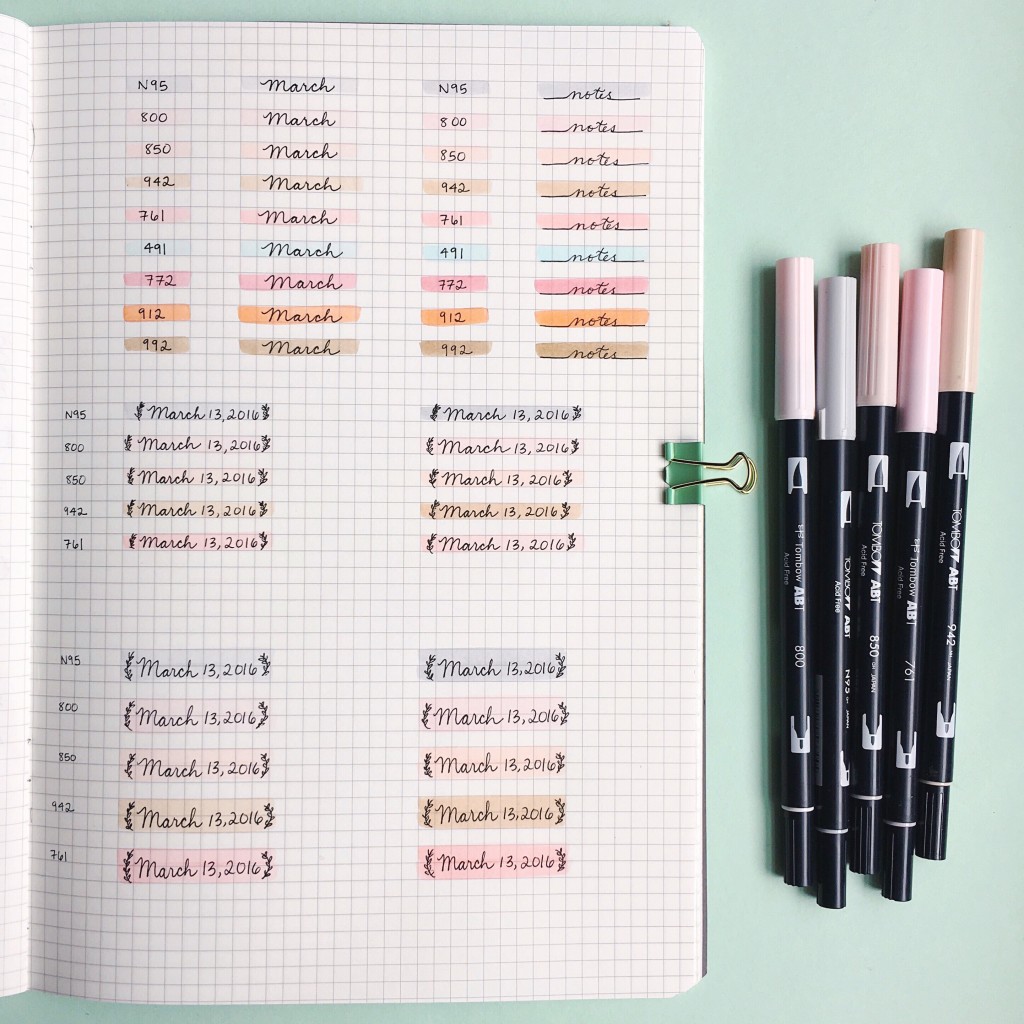 N95 March N95 notes
800 March 800 notes
850 March 850 notes
942 March 942 notes
761 March 761 notes
491 March 491 notes
772 March 772 notes
912 March 912 notes
992 March 992 notes
N95 March 13, 2016 March 13, 2016
800 March 13, 2016 March 13, 2016
850 March 13, 2016 March 13, 2016
942 March 13, 2016 March 13, 2016
761 March 13, 2016 March 13, 2016
N95 March 13, 2016 March 13, 2016
800 March 13, 2016 March 13, 2016
850 March 13, 2016 March 13, 2016
942 March 13, 2016 March 13, 2016
761 March 13, 2016 March 13, 2016
Tombow ABT 800
Acid Free
TOMBOW ABT N95 JAPAN
Acid Free
TOMBOW ABT 850 JAPAN
Acid Free
Tombow ABT 761
Acid Free
TOMBOW ABT 942 JAPAN
Acid Free